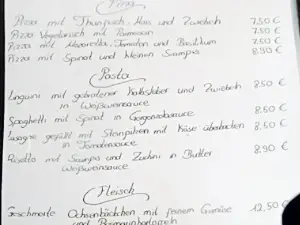 Pizza
Pizza mit Thunfisch, Mais und Zwiebeln 7.50 €
Pizza Vegetarisch mit Parmesan 7.50 €
Pizza mit Mozzarella, Tomaten und Basilikum 7.50 €
Pizza mit Spinat und kleinen Scampis 8.90 €
Pasta
Linguini mit gebratener Kalbsleber und Zwiebeln 8.50 €
in Weißweinsauce
Spaghetti mit Spinat in Gorgonzolasauce 8.50 €
Lasagne gefüllt mit Steinpilzen mit Käse überbacken 8.50 €
in Tomatensauce
Risotto mit Scampis und Zuchini in Butter 8.90 €
Weißweinsauce
Fleisch
Geschmorte Ochsenbäckchen mit feinem Gemüse 12,50 €
und